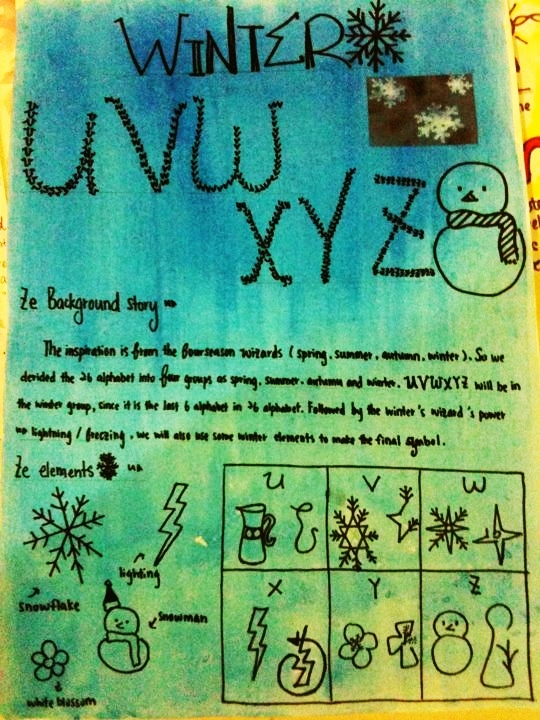 WINTER
UVW
XYZ
Ze Background story
The inspiration is from the fourseason wizards (spring, summer, autumn, winter). So we
derided the 26 alphabet into four groups as spring, summer, autumn and winter. UVWXYZ will be in
the winter group, since it is the last 6 alphabet in 26 alphabet. Followed by the winter's wizard's power
lightning / freezing, we will also use some winter elements to make the final symbol.
Ze elements
U V W
lighting
snowflake
snowman
X Y Z
white blossom